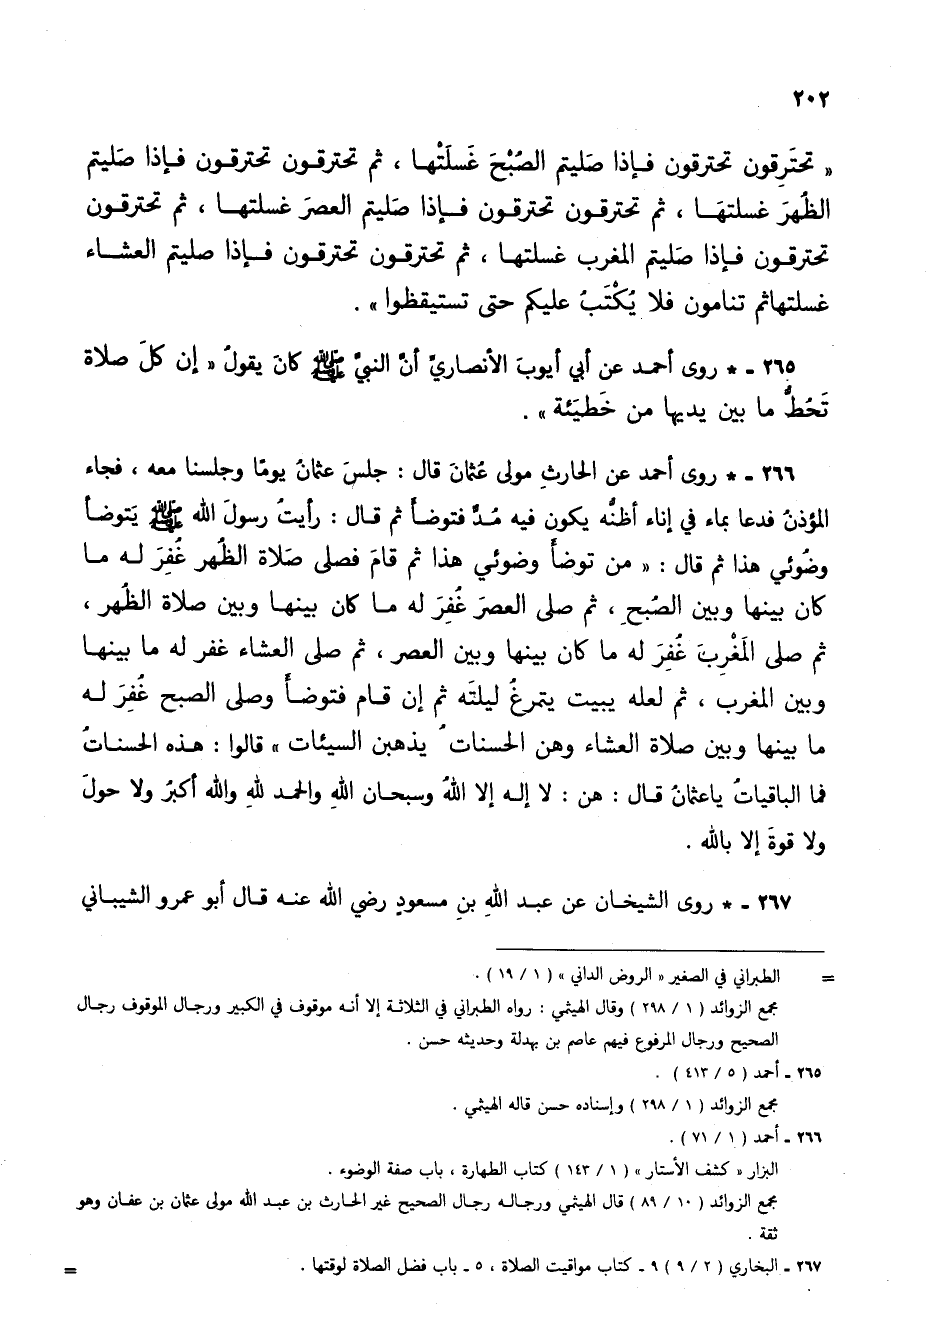 ٢٠٢
« تحتَرِقون تحترقون فإذا صَليتم الصُبْحَ غَسلَتْها ، ثم تحترقون تحترقون فإذا صَليتم
الظُهرَ غسلتهَا ، ثم تحترقون تحترقون فإذا صَليتم العصرَ غسلتها ، ثم تحترقون
تحترقون فإذا صَليتم المغرب غسلتها ، ثم تحترقون تحترقون فإذا صليتم العشاء
غسلتهاثم تنامون فلا يُكْتَبُ عليكم حتى تستيقظوا » .
٢٦٥ - * روى أحمد عن أبي أيوبَ الأنصاريِّ أنَّ النبيَّ ﷺ كانَ يقولُ « إن كلَ صلاة
تَحُطُّ ما بين يديها من خَطيَئة » .
٢٦٦ - * روى أحمد عن الحارثِ مولى عُثمانَ قال : جلسَ عثمانُ يومًا وجلسنا معه ، فجاء
المؤذنُ فدعا بماء في إناء أظنُّه يكون فيه مُدٌّ فتوضأَ ثم قال : رأيتُ رسولَ الله ﷺ يَتوضأ
وضُوئي هذا ثم قال : « من توضأَ وضوئي هذا ثم قامَ فصلى صَلاة الظُهرِ غُفِرَ له ما
كان بينها وبين الصُبحِ ، ثم صلى العصرَ غُفِرَ له ما كان بينها وبين صلاة الظهر ،
ثم صلى المَغْرِبَ غُفِرَ له ما كان بينها وبين العصر ، ثم صلى العشاء غفر له ما بينها
وبين المغرب ، ثم لعله يبيت يتمرغُ ليلتَه ثم إن قام فتوضأَ وصلى الصبح غُفِرَ له
ما بينها وبين صلاة العشاء وهن الحسناتُ يذهبن السيئات » قالوا : هذه الحسناتُ
فما الباقياتُ ياعثمانُ قال : هن : لا إله إلا اللهُ وسبحان اللهِ والحمد للهِ والله أكبرُ ولا حولَ
ولا قوةَ إلا بالله .
٢٦٧ - * روى الشيخان عن عبد اللهِ بنِ مسعودٍ رضي الله عنه قال أبو عمرو الشيباني
= الطبراني في الصغير « الروض الداني » ( ١ / ١٩ ) .
مجمع الزوائد ( ١ / ٢٩٨ ) وقال الهيثمي : رواه الطبراني في الثلاثة إلا أنه موقوف في الكبير ورجال الموقوف رجال
الصحيح ورجال المرفوع فيهم عاصم بن بهدلة وحديثه حسن .
٢٦٥ - أحمد ( ٥ / ٤١٣ ) .
مجمع الزوائد ( ١ / ٢٩٨ ) وإسناده حسن قاله الهيثمي .
٢٦٦ - أحمد ( ١ / ٧١ ) .
البزار « كشف الأستار » ( ١ / ١٤٣ ) كتاب الطهارة ، باب صفة الوضوء .
مجمع الزوائد ( ١٠ / ٨٩ ) قال الهيثمي ورجاله رجال الصحيح غير الحارث بن عبد الله مولى عثمان بن عفان وهو
ثقة .
٢٦٧ - البخاري ( ٢ / ٩ ) ٩ - كتاب مواقيت الصلاة ، ٥ - باب فضل الصلاة لوقتها . =